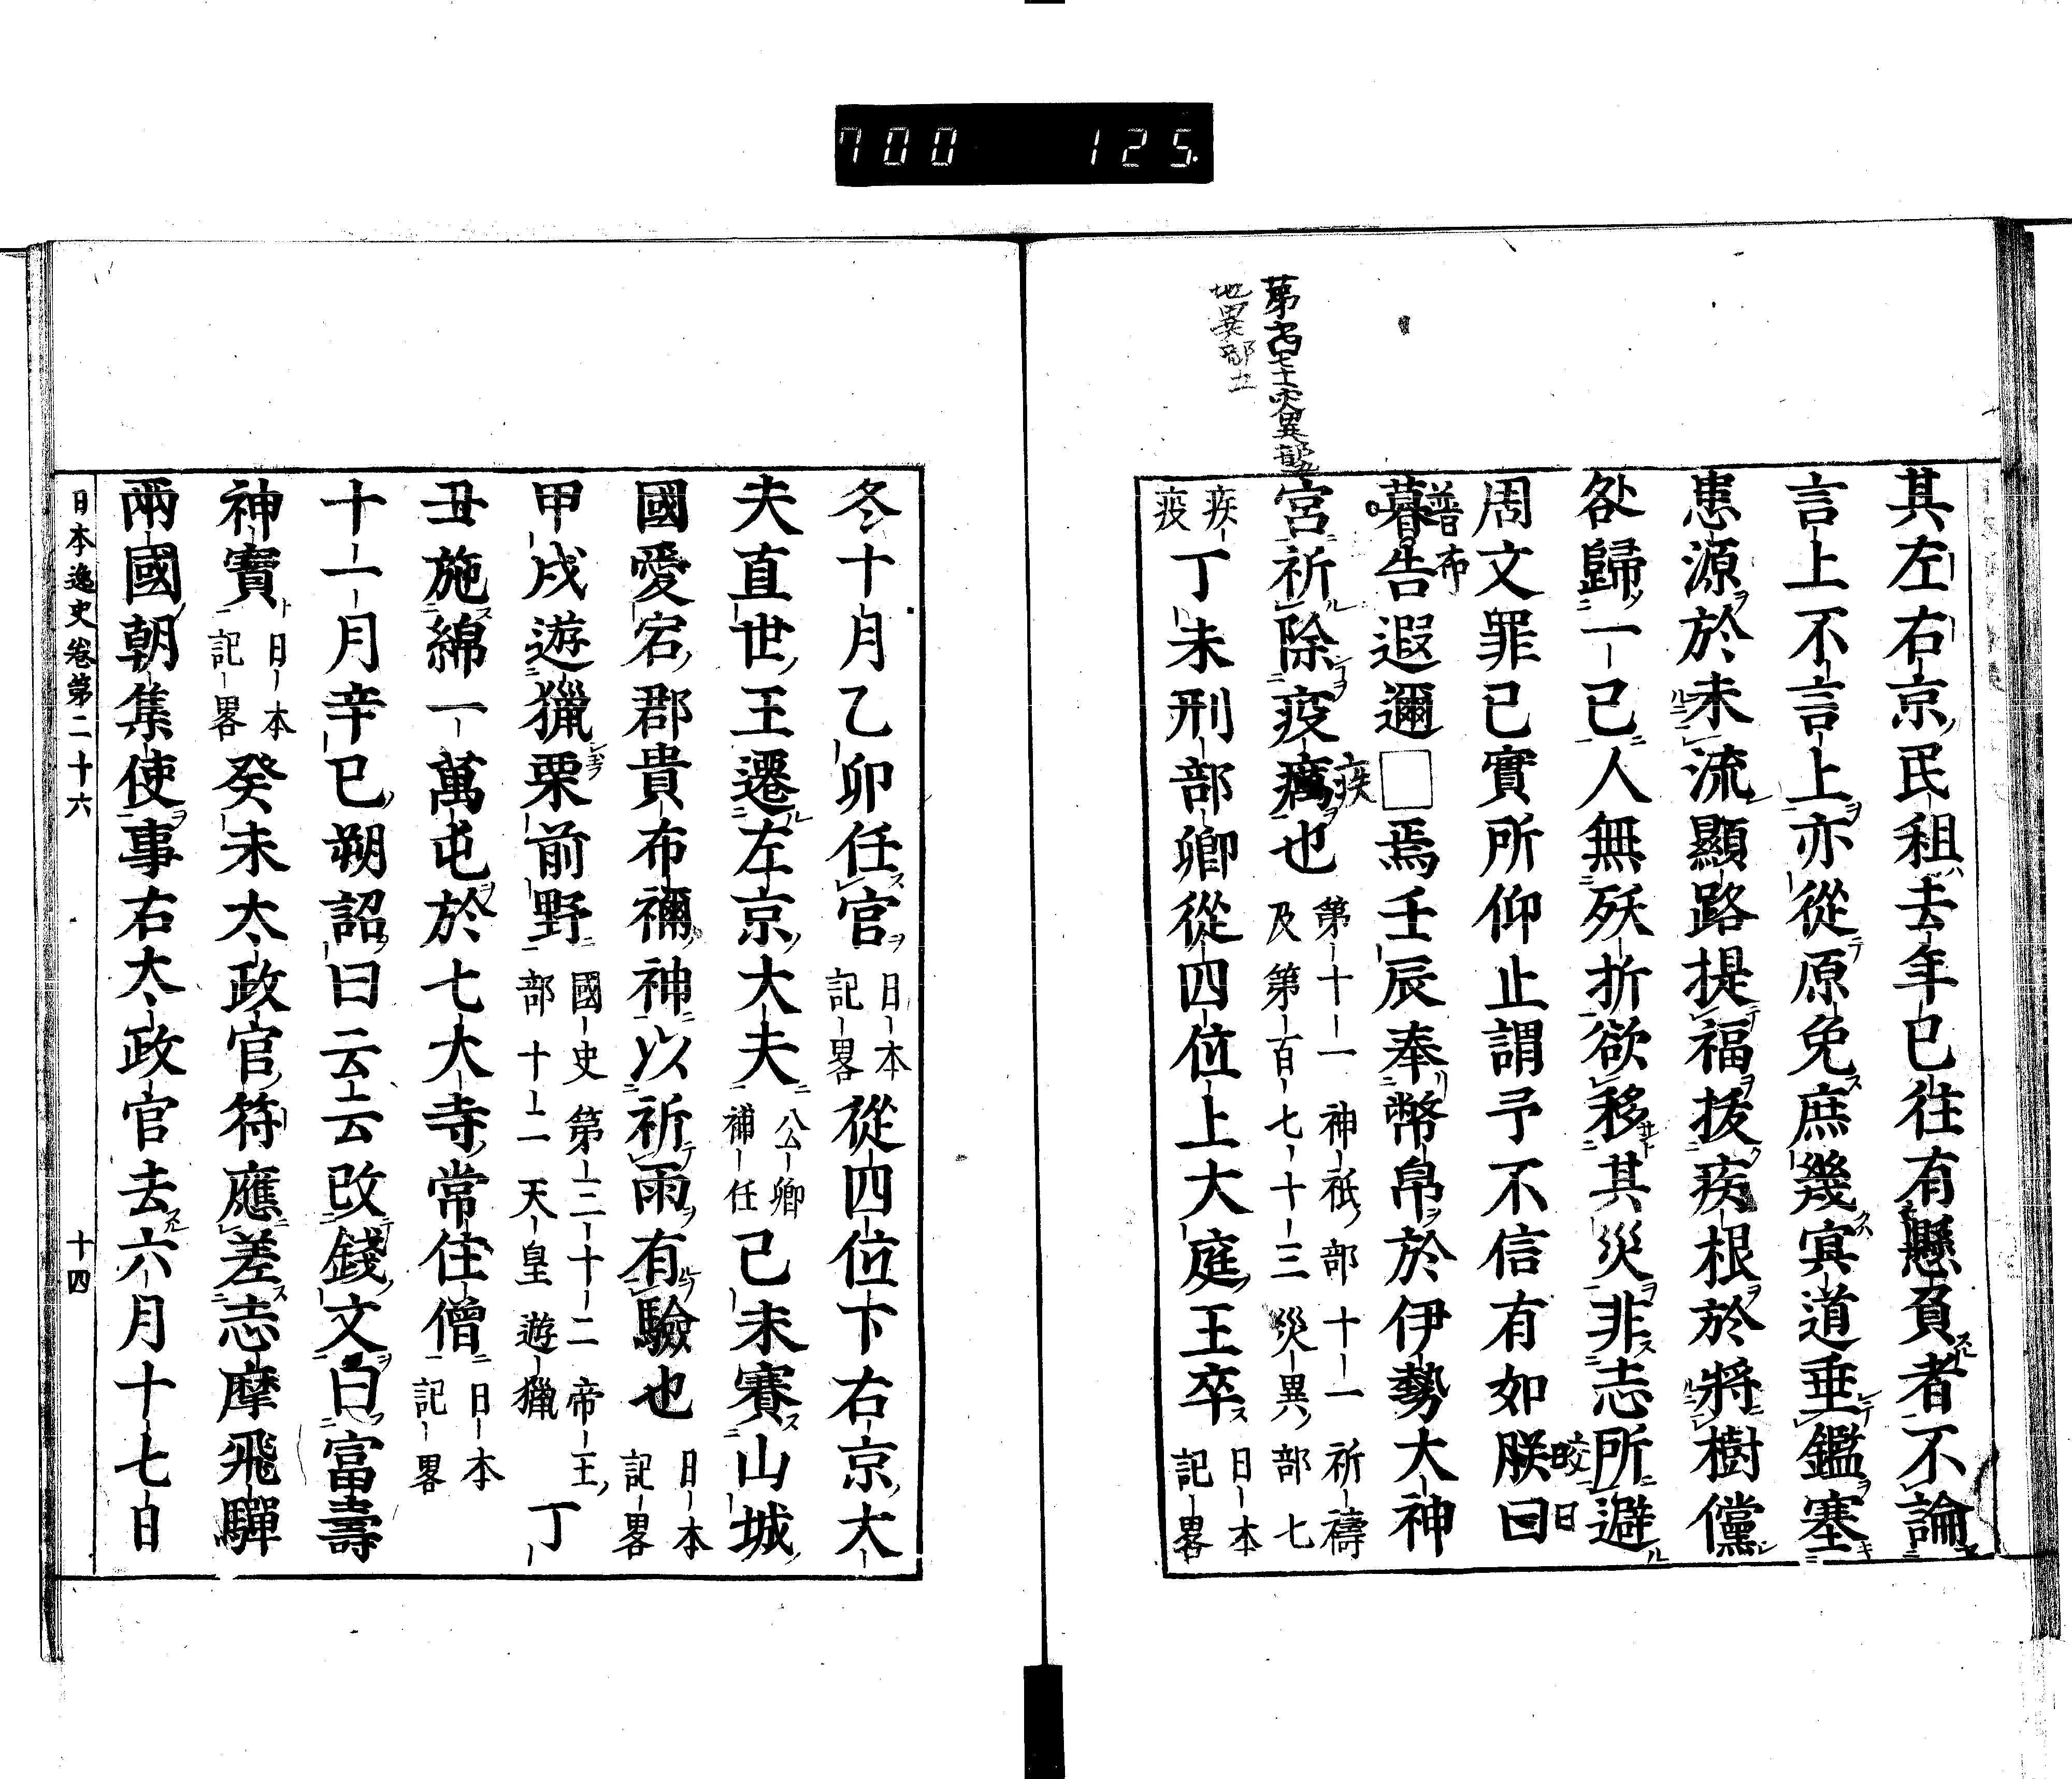 700 125
其左右京民租去年已往有懸負者不論
言上不言上亦從原免庶幾寞道垂鑑塞
患源於未流顯路提福拔疾根於將樹儻
咎歸一已人無殀折欲移其災非志所避
周文罪已實所仰止謂予不信有如朕曰
皎日
普布
暮告遐邇□焉壬辰奉幣帛於伊勢大神
宮祈除疫癘也 第十一神祇部十一祈禱
及第百七十三災異部七
疾
疾疫
丁未刑部卿從四位上大庭王卒 日本記畧
冬十月乙卯任官 日本記畧 從四位下右京大
夫直世王遷左京大夫 公卿補任 己未賽山城
國愛宕郡貴布禰神以祈雨有驗也 日本記畧
甲戌遊獵栗前野 國史第三十二帝王部十二天皇遊獵 丁
丑施綿一萬屯於七大寺常住僧 日本記畧
十一月辛巳朔詔曰云云改錢文白富壽
神寶 日本記畧 癸未太政官符應差志摩飛驒
兩國朝集使事右太政官去六月十七日
日本逸史卷第二十六 十四